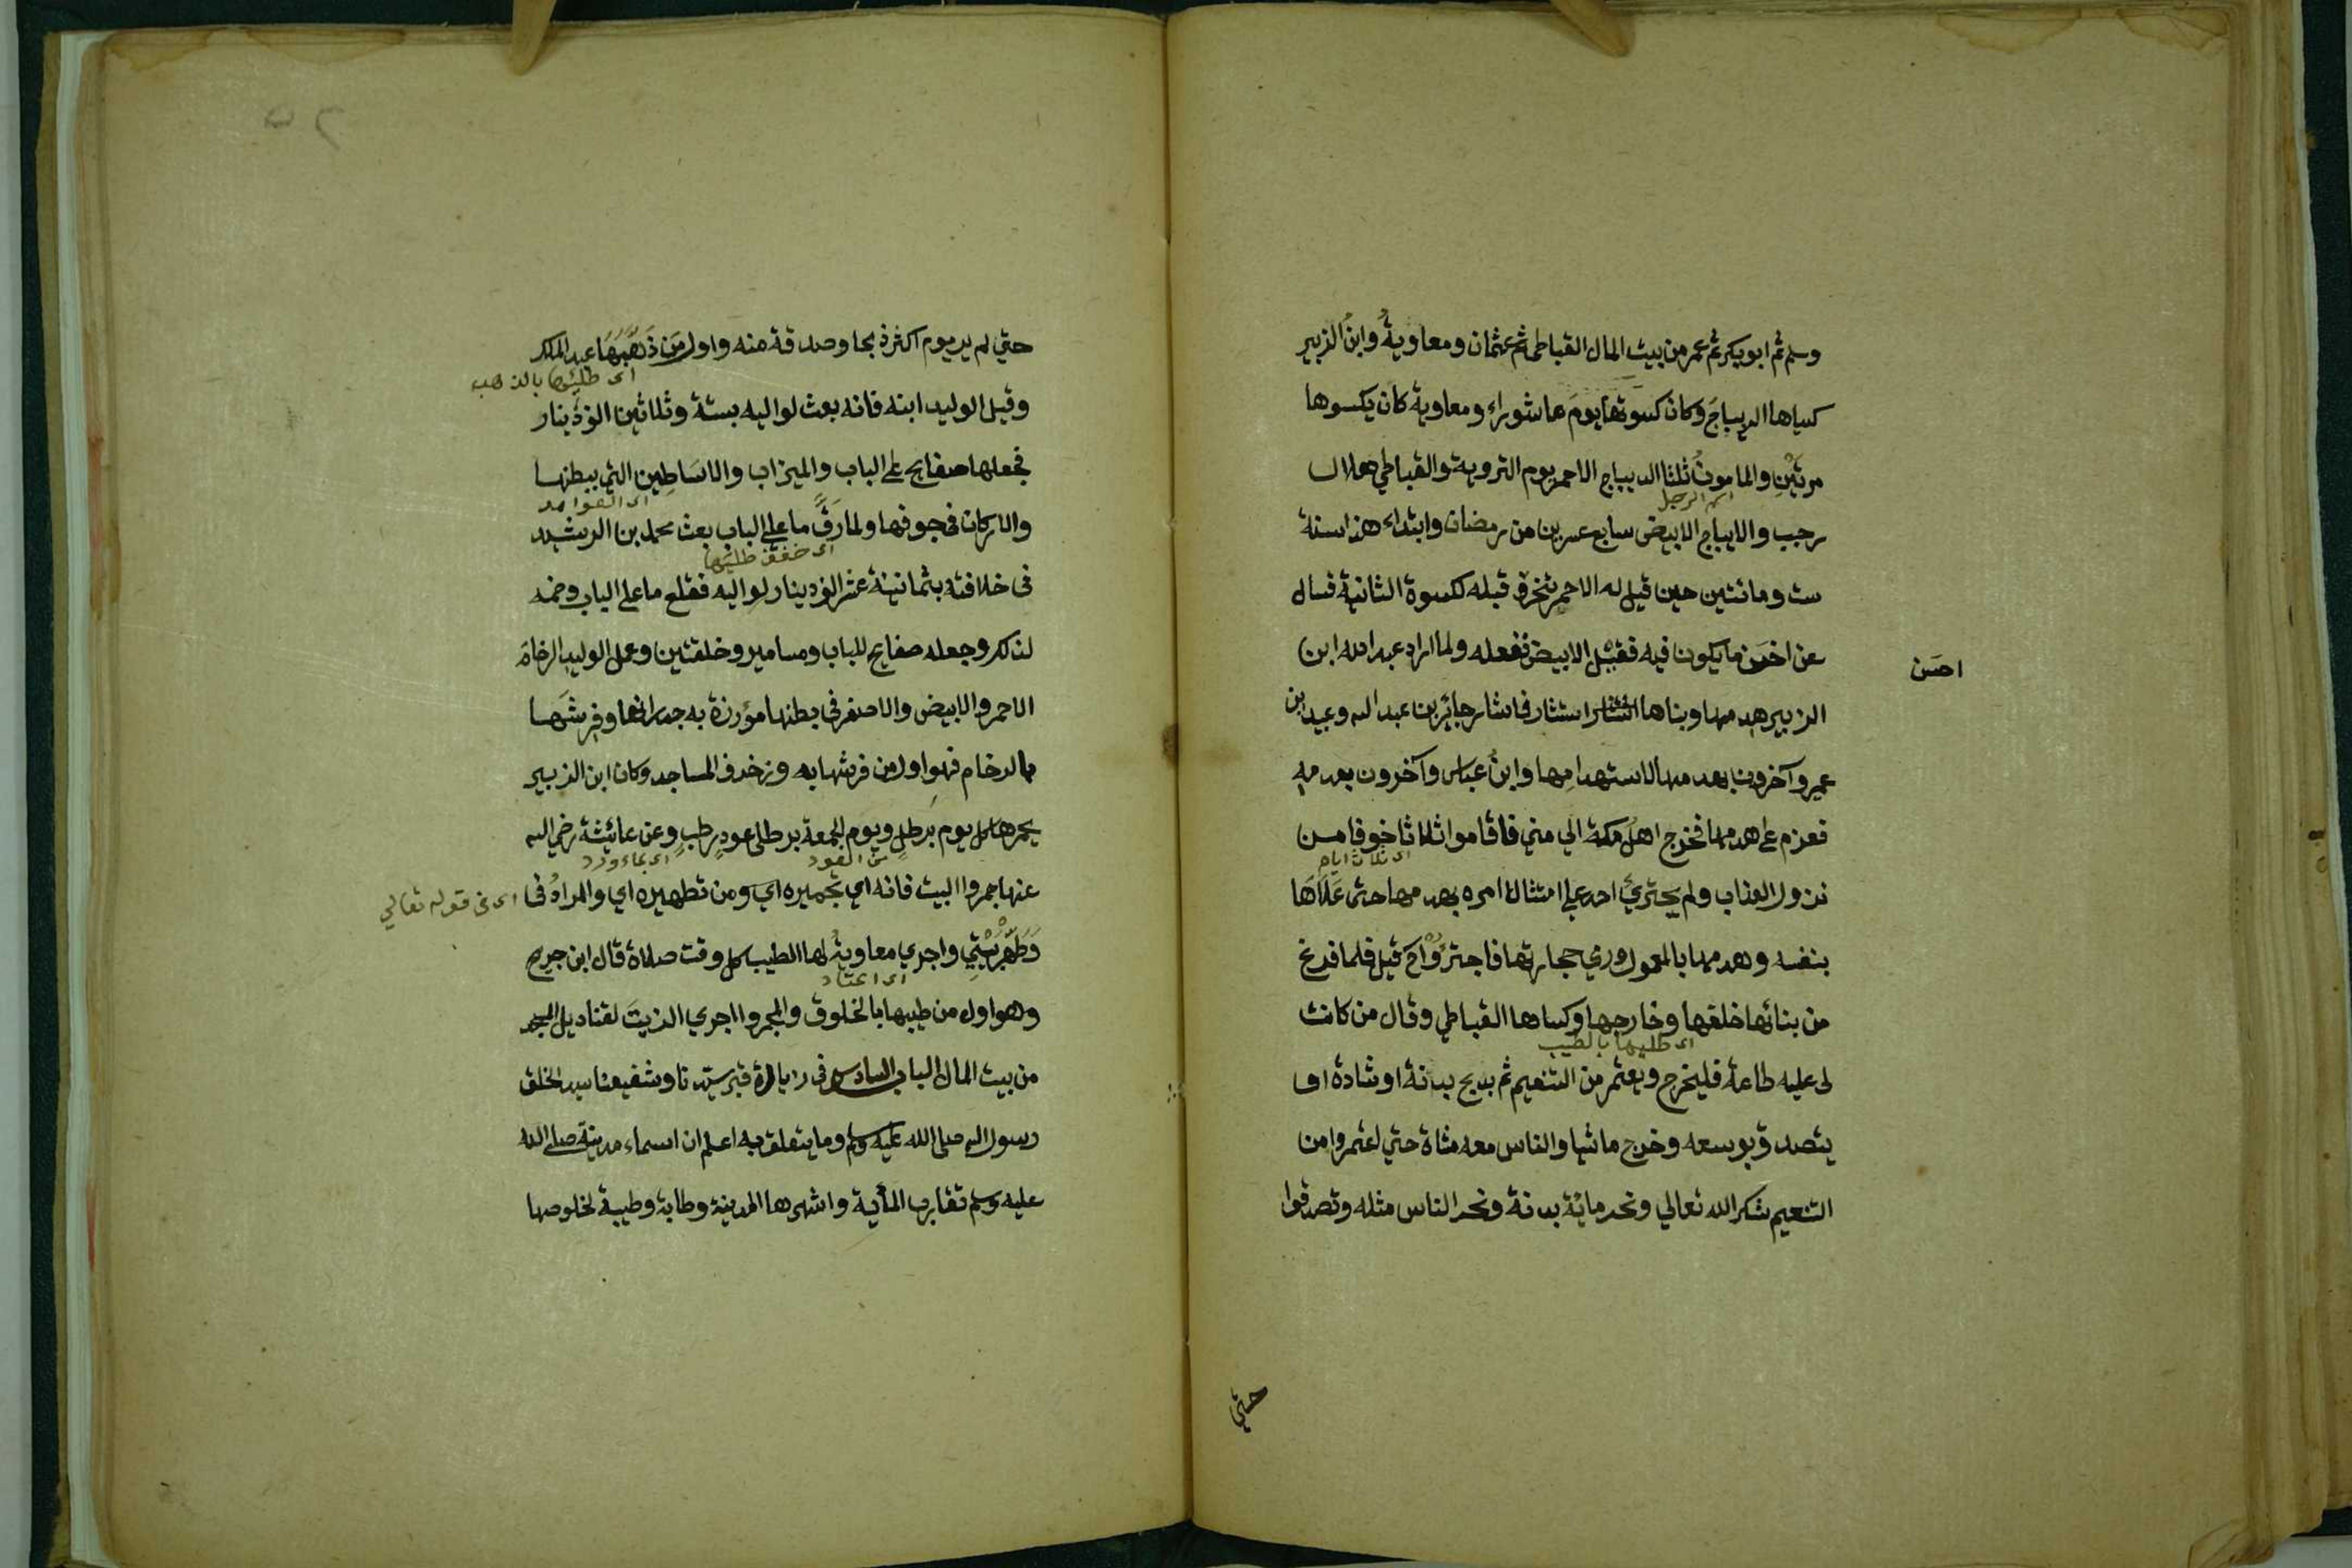 وسلم ثم ابو بكر ثم عمر من بيت المال القباطي ثم عثمان ومعاوية وابن الزبير
كسياها الديباج وكان كسوتها يوم عاشوراء ومعاوية كان يكسوها
مرتين والمامون ثلثا الديباج الاحمر يوم التروية والقباطي هلال
اسم الرجل
رجب والديباج الابيض سابع عسرين من رمضان وابتداء هذا سنة
ست ومائتين حين قيل له الاحمر يتخرق قبله ككسوة الثانية فسال
عن اخسن ما يكون فيه فقيل الابيض ففعله ولما اراد عبد الله ابن
احسن
الزبير هدمها وبناها استشار فاشار جابر بن عبد الله وعبيد ابن
عمير وآخرون بهدمها لاستهدامها وابن عباس وآخرون بعدمه
فعزم على هدمها فخرج اهل مكة الي مني فاقاموا ثلاثا خوفا مـن
اى ثلاث ايام
نزول العذاب ولم يجتري احد علي امتثال امره بهدمها حتى علاها
بنفسه وهدمها بالمعول ورمي حجارتها فاجترؤا ح قيل فلما فرغ
من بنائها خلقها وخارجها وكساها القباطي وقال من كانت
اى طليها بالطيب
لى عليه طاعة فليخرج ويعتمر من التنعيم ثم يذبح بدنة او شاة او
يتصدق بوسعه وخرج ماشيا والناس معه مشاة حتي اعتمروا من
التنعيم شكرا لله تعالي ونحر مائة بدنة ونحر الناس مثله وتصدقوا
حتي
حتي لم ير يوم اكثر ذبحا وصدقة منه واول من ذهبها عبد الملك
اى طليها بالذهب
وقيل الوليد ابنه فانه بعث لواليه بستة وثلاثين الف دينار
فجعلها صفايح علي الباب والميزاب والاساطين التي ببطنها
اى العواميد
والاركان في جوفها ولما رق ما علي الباب بعث محمد بن الرشيد
اى خفف طليها
فى خلافته بثمانية عشر الف دينار لواليه فقلع ما علي الباب وضمه
لذلك وجعله صفايح للباب ومسامير وخلقتين وعمل الوليد الرخام
الاحمر والابيض والاصفر في بطنها مؤزرة به جدرانها وفرشها
بالرخام فهو اول من فرشها به وزخرف المساجد وكان ابن الزبير
يجمرها كل يوم برطل ويوم الجمعة برطلى عود رطب وعن عائشة رضي الله
من العود
اى بماء ورد
عنها جمروا البيت فانه اي تجميره اي ومن تطهيره اي والمراد فى
اى فى قوله تعالي
وطهر بيتي واجري معاوية لها الطيب كل وقت صلاة قال ابن جريج
اى اعتاد
وهو اول من طيبها بالخلوق والمجمر واجري الزيت لقناديل
من بيت المال الباب السادس فى زيارة قبر سيدنا وشفيعنا سيد الخلق
رسول الله صلى الله عليه وسلم وما يتعلق به اعلم ان اسماء مدينته صلى الله
عليه وسلم تقارب المأية واشهرها المدينة وطابة وطيبة لخلوصها